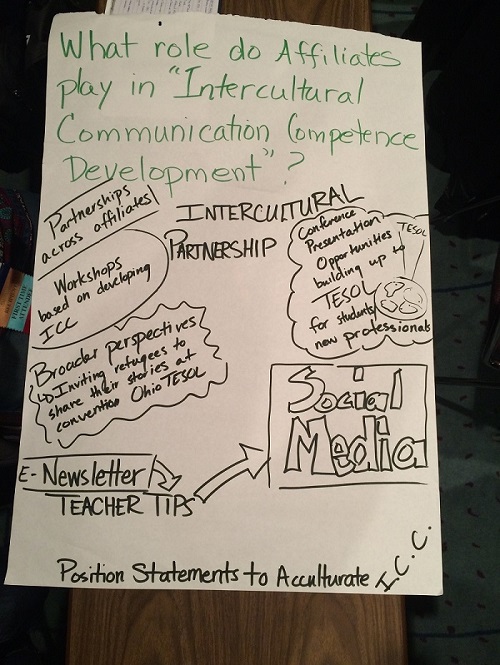 What role do Affiliates
play in "Intercultural
Communication Competence
Development"?
Partnerships
across affiliates
INTERCULTURAL
PARTNERSHIP
Workshops
based on developing
ICC
Conference
Presentation
Opportunities
building up to
TESOL
for students/
new professionals
TESOL
Broader perspectives
Inviting refugees to
share their stories at
convention Ohio TESOL
Social
Media
E-Newsletter
TEACHER TIPS
Position Statements to Acculturate I.C.C.
FIRST TIME